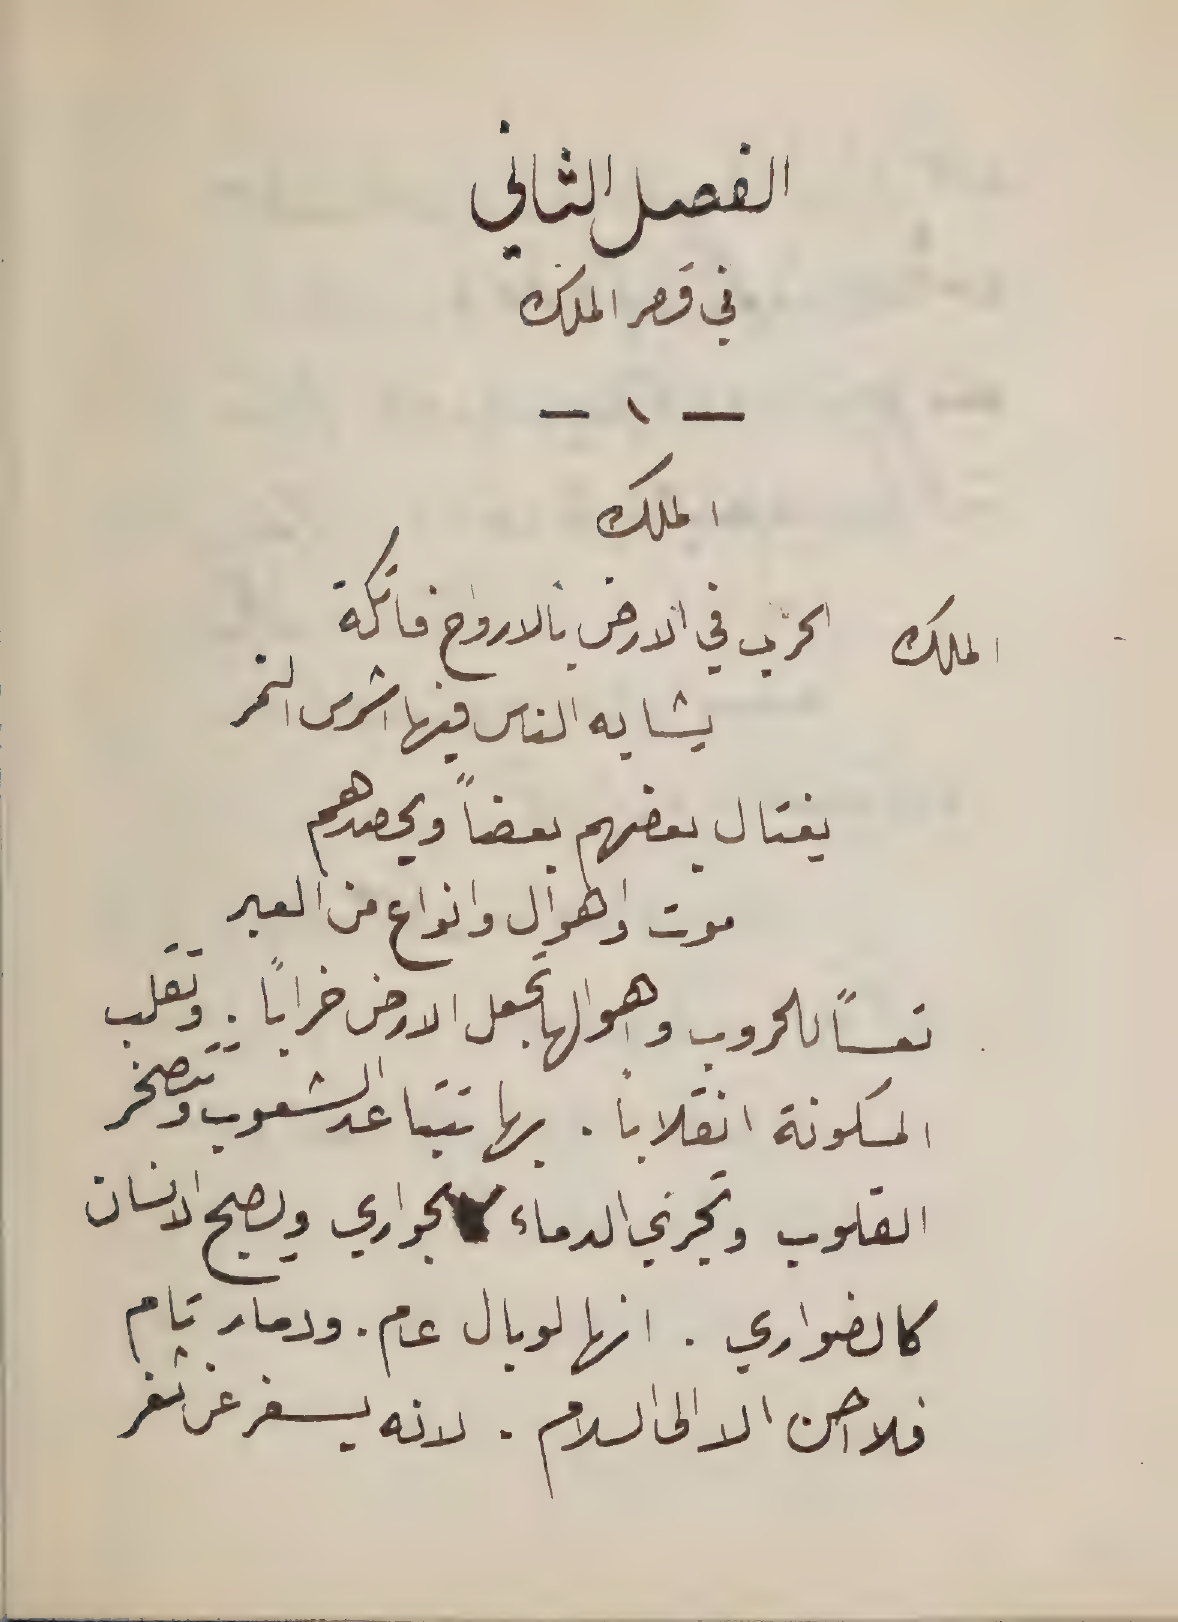 الفصل الثاني
في قصر الملك
— ١ —
الملك
الملك الحرب في الارض بالارواح فاتكة
يشابه الناس فيها اشرس النمر
يغتال بعضهم بعضاً ويحصدهم
موت واهوال وانواع من العبر
تعساً للحروب واهوالها تجعل الارض خراباً . وتقلب
المسكونة انقلاباً . بها تتباعد الشعوب وتتصخر
القلوب وتجري الدماء كالجواري ويصبح الانسان
كالضواري . انها لوبال عام . ودمار تام
فلا احن الا الى السلام . لانه يسفر عن ثغر